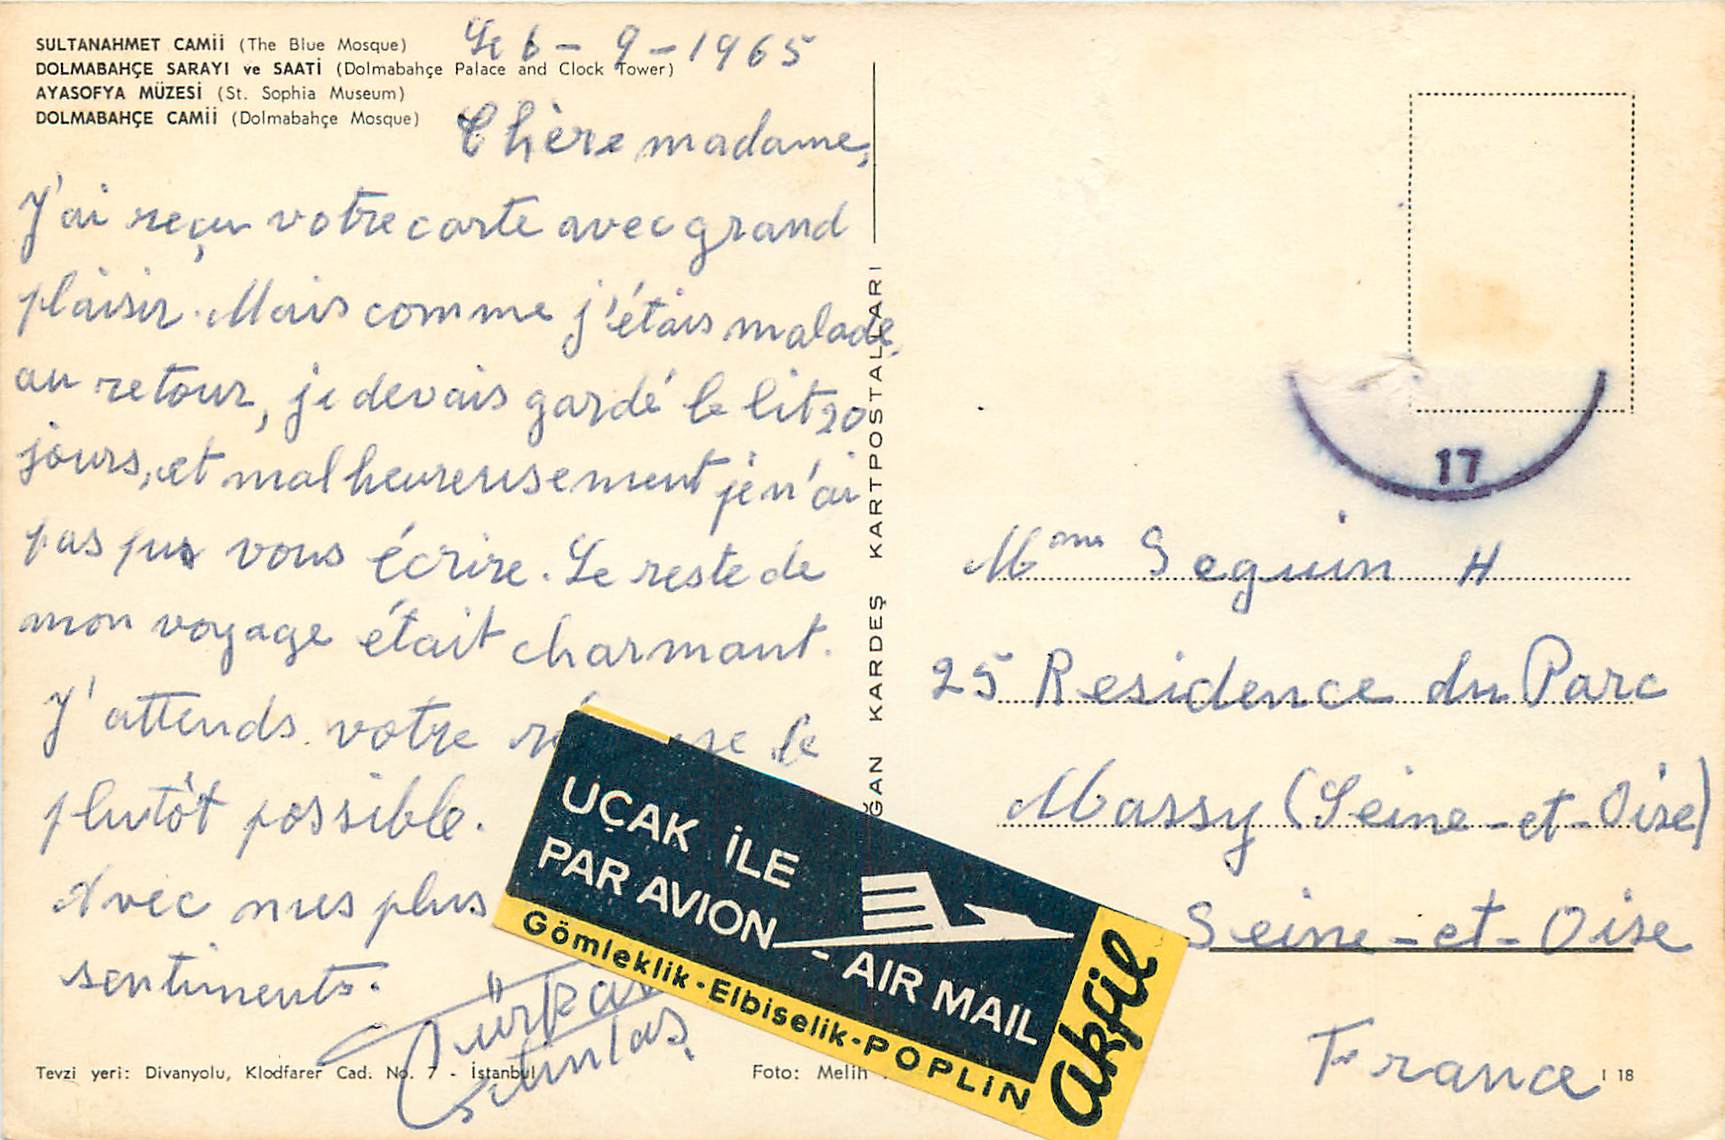 SULTANAHMET CAMİİ (The Blue Mosque)
DOLMABAHÇE SARAYI ve SAATİ (Dolmabahçe Palace and Clock Tower)
AYASOFYA MÜZESİ (St. Sophia Museum)
DOLMABAHÇE CAMİİ (Dolmabahçe Mosque)
Le 6 - 9 - 1965
Chère madame,
J'ai reçu votre carte avec grand
plaisir. Mais comme j'étais malade
au retour, je devais gardé le lit 20
jours, et malheureusement je n'ai
pas pus vous écrire. Le reste de
mon voyage était charmant.
J'attends votre le
plutôt possible.
Avec mes plus
sentiments.
Tevzi yeri: Divanyolu, Klodfarer Cad. No. 7 - İstanbul
Foto: Melih
ĞAN KARDEŞ KARTPOSTALLARI
UÇAK İLE
PAR AVION - AIR MAIL
Gömleklik-Elbiselik-POPLİN
akfil
17
Mme Seguin H
25 Residence du Parc
Massy (Seine-et-Oise)
Seine-et-Oise
France
I 18